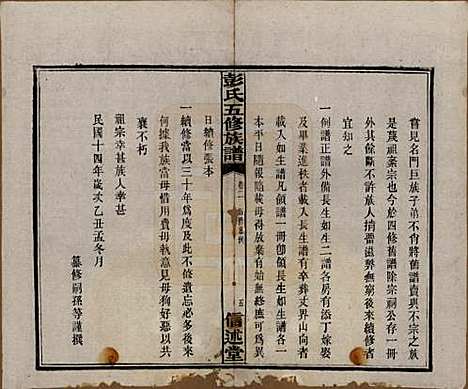 嘗見名門巨族子弟不肖將舊譜賣與不宗之族
是蔑祖棄宗也今於四修舊譜除宗祠公存一冊
外其餘斷不許族人捐𤲞滋弊無窮後來續修者
宜知之
一例譜正譜外備長生如生二譜各房有添丁嫁娶
及畢業進秩者載入長生譜有卒葬丈界山向者
載入如生譜凡領譜一冊即領長生如生譜各一
本平日隨報臨載毋得放棄有始無終庶可為異
日續修張本
一續修當以三十年為度此不修遺忘必多後來
何據我族當毋惜用費毋執意見毋狗好惡以共
襄不朽
祖宗幸甚族人幸甚
民國十四年歲次乙丑孟冬月
纂修嗣孫等謹撰
彭氏五修族譜
卷二
五
信述堂